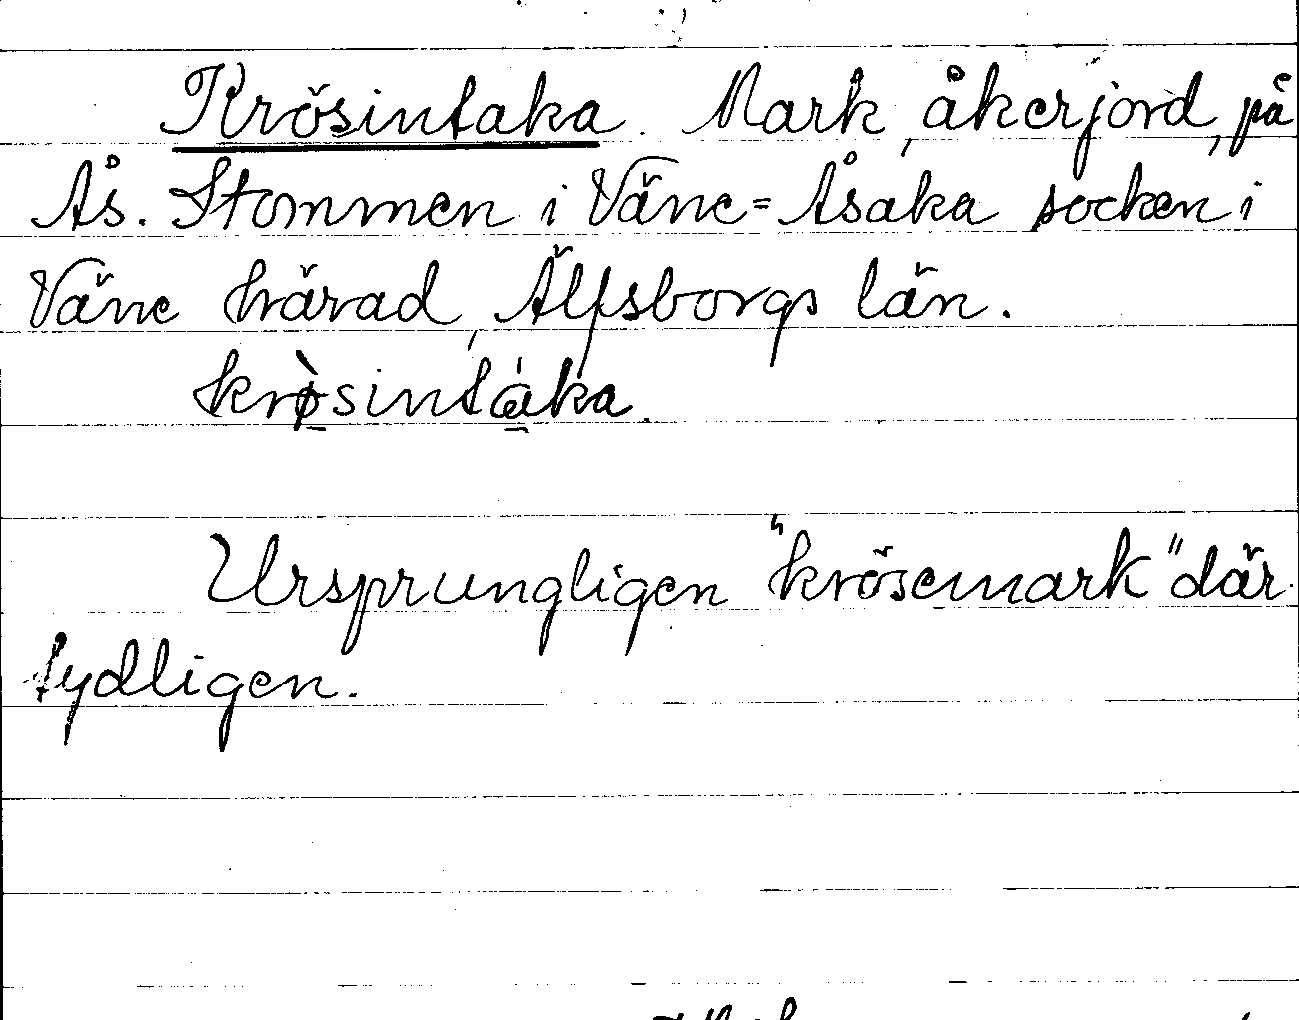 Krösintaka. Mark, åkerjord, på
Ås. Stommen i Väne=Åsaka socken i
Väne härad, Älfsborgs län.
krø̀sintáka.
Ursprungligen "krösemark" där
tydligen.